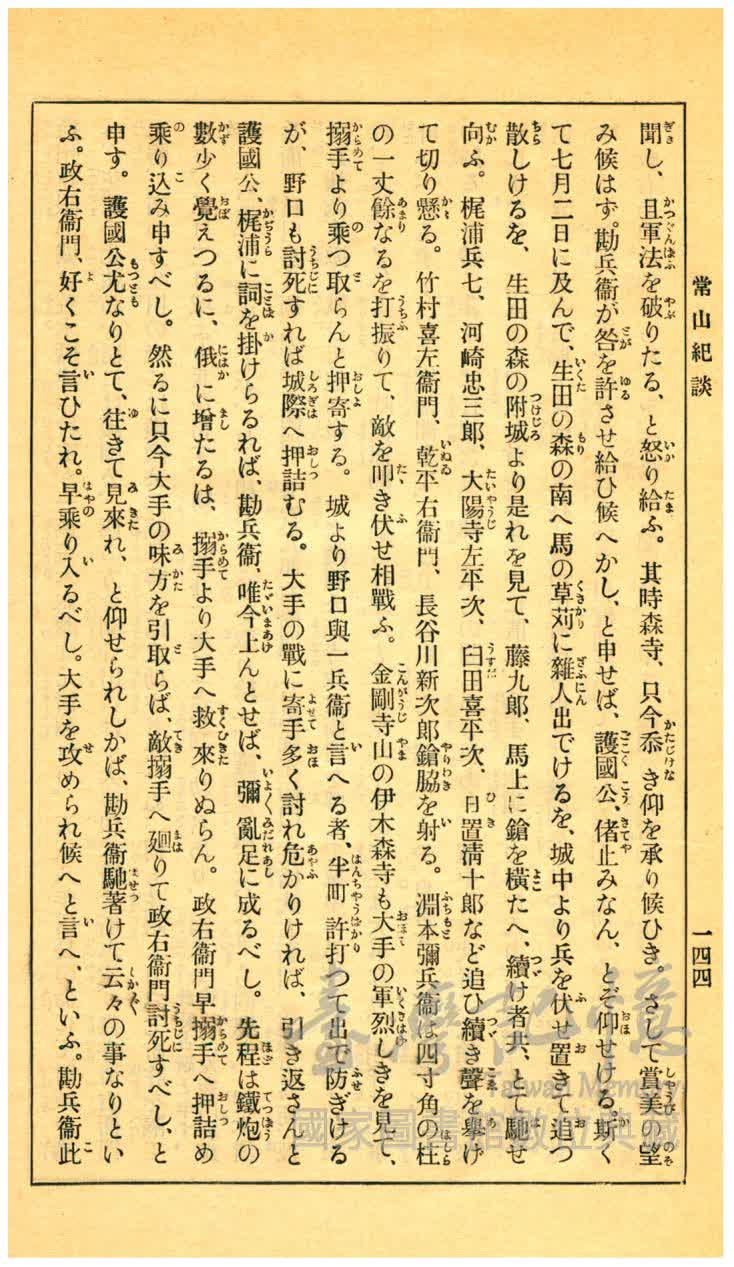 常山紀談
一四四
聞し、且軍法を破りたる、と怒り給ふ。其時森寺、只今忝き仰を承り候ひき。さして賞美の望
み候はず。勘兵衞が咎を許させ給ひ候へかし、と申せば、護國公、偖止みなん、とぞ仰せける。斯く
て七月二日に及んで、生田の森の南へ馬の草苅に雜人出でけるを、城中より兵を伏せ置きて追つ
散しけるを、生田の森の附城より是れを見て、藤九郎、馬上に鎗を橫たへ、續け者共、とて馳せ
向ふ。梶浦兵七、河崎忠三郎、大陽寺左平次、臼田喜平次、日置淸十郎など追ひ續き聲を擧げ
て切り懸る。竹村喜左衞門、乾平右衞門、長谷川新次郎鎗脇を射る。淵本彌兵衞は四寸角の柱
の一丈餘なるを打振りて、敵を叩き伏せ相戰ふ。金剛寺山の伊木森寺も大手の軍烈しきを見て、
搦手より乘つ取らんと押寄する。城より野口與一兵衞と言へる者、半町許打つて出で防ぎける
が、野口も討死すれば城際へ押詰むる。大手の戰に寄手多く討れ危かりければ、引き返さんと
護國公、梶浦に詞を掛けらるれば、勘兵衞、唯今上んとせば、彌亂足に成るべし。先程は鐵炮の
數少く覺えつるに、俄に增たるは、搦手より大手へ救來りぬらん。政右衞門早搦手へ押詰め
乘り込み申すべし。然るに只今大手の味方を引取らば、敵搦手へ廻りて政右衞門討死すべし、と
申す。護國公尤なりとて、往きて見來れ、と仰せられしかば、勘兵衞馳著けて云々の事なりとい
ふ。政右衞門、好くこそ言ひたれ。早乘り入るべし。大手を攻められ候へと言へ、といふ。勘兵衞此
臺灣記憶
Taiwan Memory
國家圖書館數位典藏